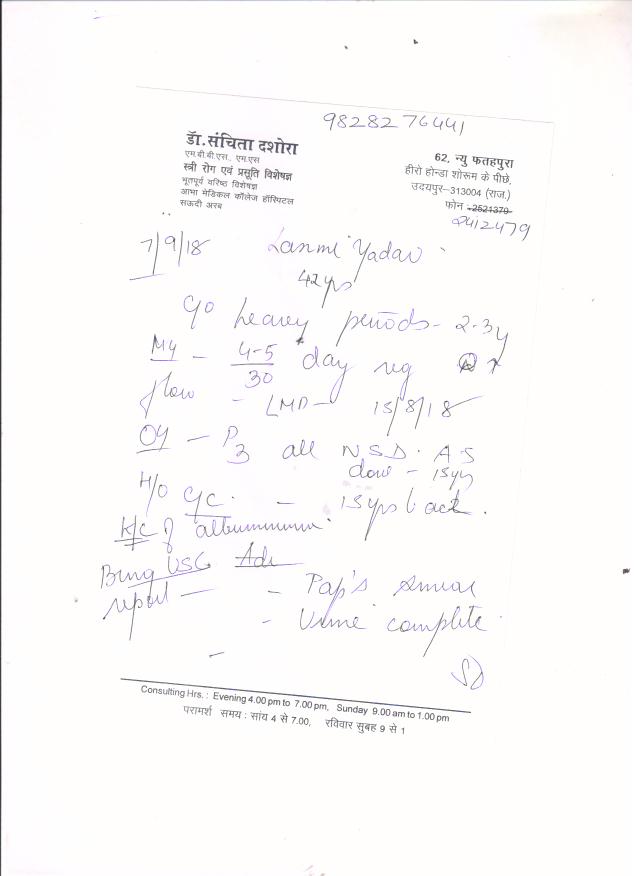 9828276441
डॉ. संचिता दशोरा
एम.बी.बी.एस., एम.एस
स्त्री रोग एवं प्रसूति विशेषज्ञ
भूतपूर्व वरिष्ठ विशेषज्ञ
आभा मेडिकल कॉलेज हॉस्पिटल
सऊदी अरब
62, न्यु फतहपुरा
हीरो होन्डा शोरूम के पीछे,
उदयपुर–313004 (राज.)
फोन -2521379
2412479
7/9/18 Laxmi Yadav
42 yrs
C/o heavy periods - 2-3y
M/H - 4-5/30 day reg
flow - LMP - 15/8/18
O/H - P3 all N.S.D. A.S
done - 15yrs
H/O - 15 yrs back.
K/C of
Bring USG Adv
report - - Pap's smear
- Urine complete
-
SD
Consulting Hrs. : Evening 4.00 pm to 7.00 pm, Sunday 9.00 am to 1.00 pm
परामर्श समय : सांय 4 से 7.00, रविवार सुबह 9 से 1